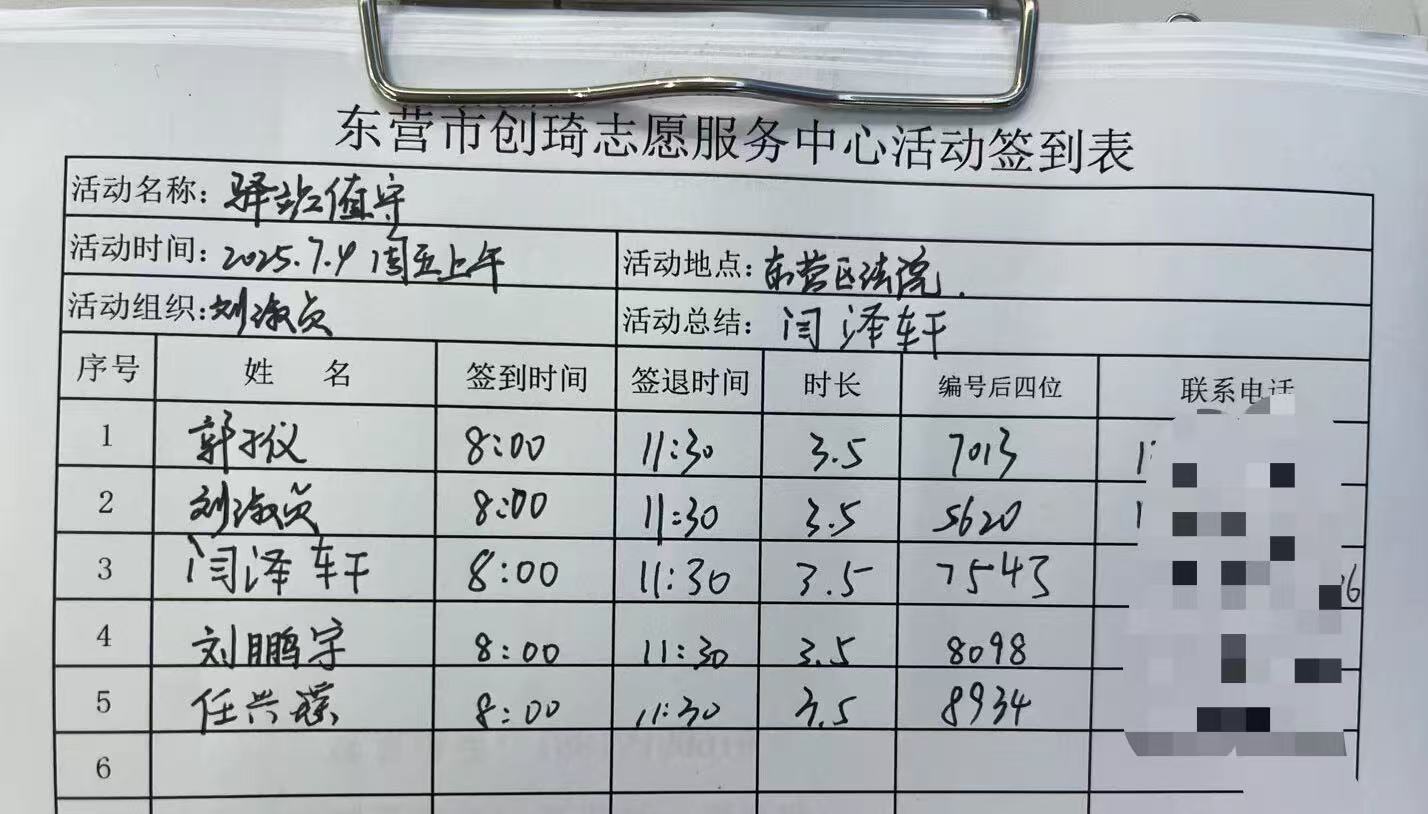 东营市创琦志愿服务中心活动签到表
活动名称：驿站值守
活动时间：2025.7.4 周五上午 活动地点：东营区法院.
活动组织：刘淑贞 活动总结：闫泽轩
序号 姓 名 签到时间 签退时间 时长 编号后四位 联系电话
1 郭子仪 8:00 11:30 3.5 7013
2 刘淑贞 8:00 11:30 3.5 5620
3 闫泽轩 8:00 11:30 3.5 7543
4 刘鹏宇 8:00 11:30 3.5 8098
5 任兴璞 8:00 11:30 3.5 8934
6